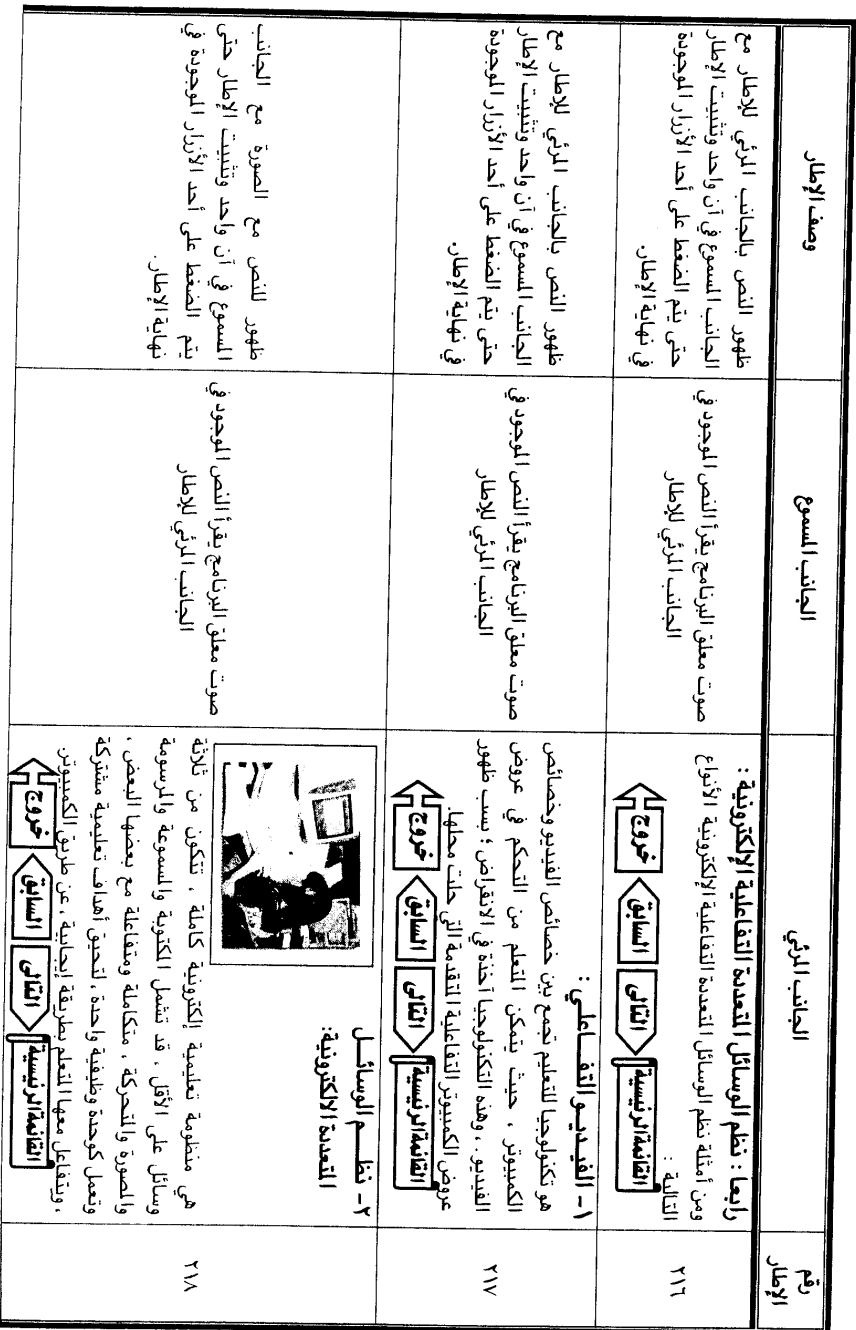 رقم
الإطار
الجانب المرئي
الجانب المسموع
وصف الإطار
٢١٦
رابعا : نظم الوسائل المتعددة التفاعلية الإلكترونية :
ومن أمثلة نظم الوسائل المتعددة التفاعلية الإلكترونية الأنواع
التالية :
القائمة الرئيسية
التالى
السابق
خروج
صوت معلق البرنامج يقرأ النص الموجود في
الجانب المرئي للإطار
ظهور النص بالجانب المرئي للإطار مع
الجانب المسموع في آن واحد وتثبيت الإطار
حتى يتم الضغط على أحد الأزرار الموجودة
في نهاية الإطار.
٢١٧
١- الفيديو التفاعلي :
هو تكنولوجيا للتعليم تجمع بين خصائص الفيديو وخصائص
الكمبيوتر ، حيث يتمكن المتعلم من التحكم في عروض
الفيديو . ، وهذه التكنولوجيا آخذة في الانقراض ؛ بسب ظهور
عروض الكمبيوتر التفاعلية المتقدمة التي حلت محلها.
القائمة الرئيسية
التالى
السابق
خروج
صوت معلق البرنامج يقرأ النص الموجود في
الجانب المرئي للإطار
ظهور النص بالجانب المرئي للإطار مع
الجانب المسموع في آن واحد وتثبيت الإطار
حتى يتم الضغط على أحد الأزرار الموجودة
في نهاية الإطار.
٢١٨
٢- نظم الوسائل
المتعددة الالكترونية:
هي منظومة تعليمية إلكترونية كاملة ، تتكون من ثلاثة
وسائل على الأقل ، قد تشمل المكتوبة والمسموعة والمرسومة
والمصورة والمتحركة ، متكاملة ومتفاعلة مع بعضها البعض ،
وتعمل كوحدة وظيفية واحدة ، لتحيق أهداف تعليمية مشتركة
، ويتفاعل معها المتعلم بطريقة إيجابية ، عن طريق الكمبيوتر.
القائمة الرئيسية
التالى
السابق
خروج
صوت معلق البرنامج يقرأ النص الموجود في
الجانب المرئي للإطار
ظهور للنص مع الصورة مع الجانب
المسموع في آن واحد وتثبيت الإطار حتى
يتم الضغط على أحد الأزرار الموجودة في
نهاية الإطار.